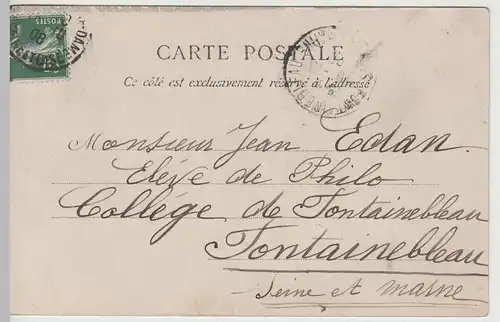 POSTES
CARTE POSTALE
Ce côté est exclusivement réservé à l'adresse
Monsieur Jean Edan
Elève de Philo
Collége de Fontainebleau
Fontainebleau
Seine et Marne